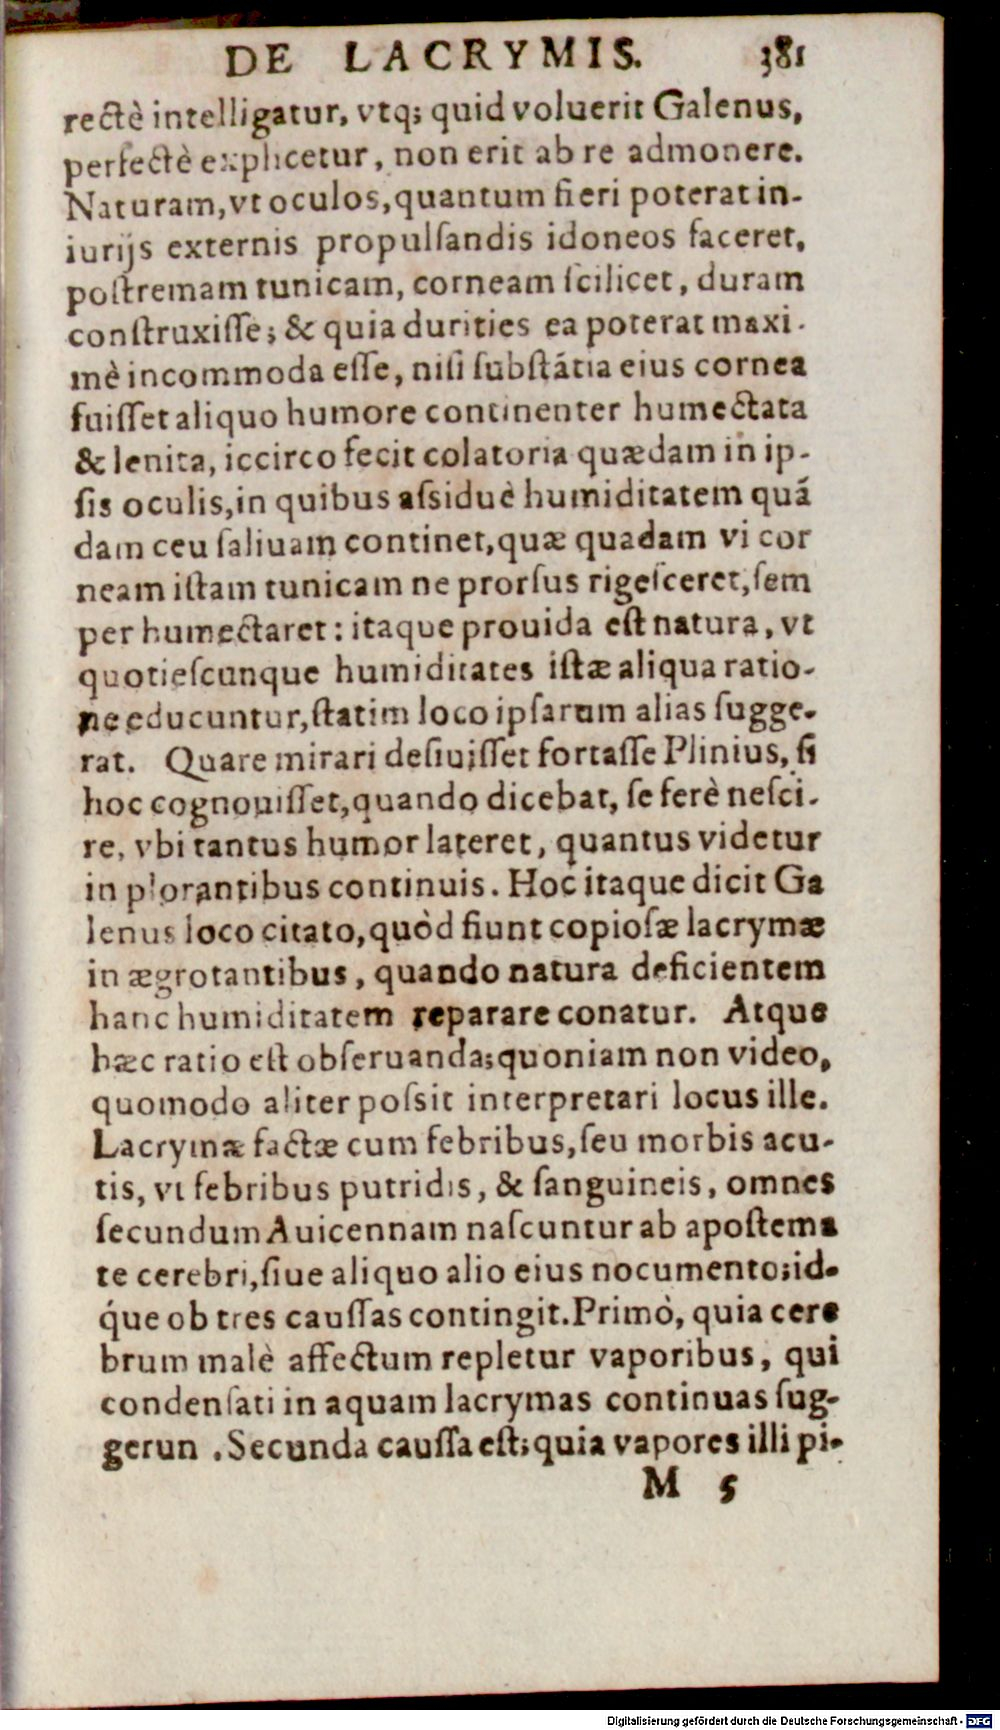 DE LACRYMIS. 381
rectè intelligatur, vtq; quid voluerit Galenus,
perfectè explicetur, non erit ab re admonere.
Naturam, vt oculos, quantum fieri poterat in-
iurijs externis propulſandis idoneos faceret,
poſtremam tunicam, corneam ſcilicet, duram
conſtruxiſſe; & quia durities ea poterat maxi-
mè incommoda eſſe, niſi ſubſtãtia eius cornea
fuiſſet aliquo humore continenter humectata
& lenita, iccirco fecit colatoria quædam in ip-
ſis oculis, in quibus aſsiduè humiditatem quã
dam ceu ſaliuam continet, quæ quadam vi cor
neam iſtam tunicam ne prorſus rigeſceret, ſem
per humectaret: itaque prouida eſt natura, vt
quotieſcunque humiditates iſtæ aliqua ratio-
ne educuntur, ſtatim loco ipſarum alias ſugge-
rat. Quare mirari deſiuiſſet fortaſſe Plinius, ſi
hoc cognouiſſet, quando dicebat, ſe ferè neſci-
re, vbi tantus humor lateret, quantus videtur
in plorantibus continuis. Hoc itaque dicit Ga
lenus loco citato, quòd fiunt copioſæ lacrymæ
in ægrotantibus, quando natura deficientem
hanc humiditatem reparare conatur. Atque
hæc ratio eſt obſeruanda; quoniam non video,
quomodo aliter poſsit interpretari locus ille.
Lacrymæ factæ cum febribus, ſeu morbis acu-
tis, vt febribus putridis, & ſanguineis, omnes
ſecundum Auicennam naſcuntur ab apoſtema
te cerebri, ſiue aliquo alio eius nocumento; id-
q́ue ob tres cauſſas contingit. Primò, quia cere
brum malè affectum repletur vaporibus, qui
condenſati in aquam lacrymas continuas ſug-
gerun . Secunda cauſſa eſt; quia vapores illi pi-
M 5
Digitalisierung gefördert durch die Deutsche Forschungsgemeinschaft - DFG